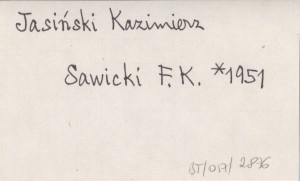 Jasiński Kazimierz
Sawicki F.K. *1951
BT/017/2876